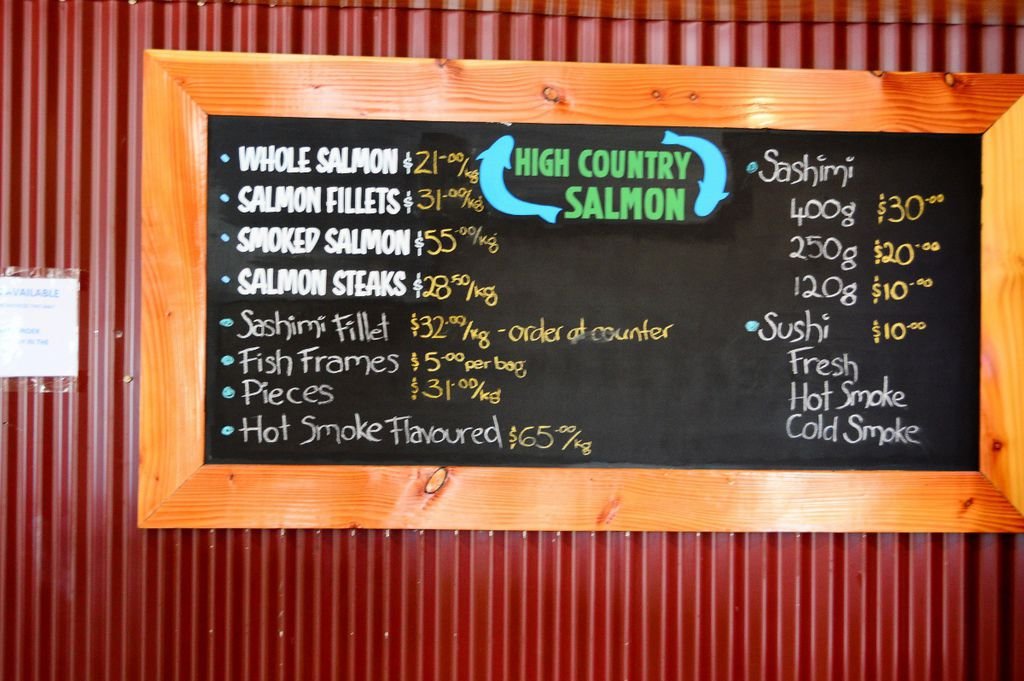 WHOLE SALMON $21.00/kg
SALMON FILLETS $31.00/kg
SMOKED SALMON $55.00/kg
SALMON STEAKS $28.50/kg
Sashimi Fillet $32.00/kg - order at counter
Fish Frames $5.00 per bag
Pieces $31.00/kg
Hot Smoke Flavoured $65.00/kg
HIGH COUNTRY
SALMON
Sashimi
400g $30.00
250g $20.00
120g $10.00
Sushi $10.00
Fresh
Hot Smoke
Cold Smoke
AVAILABLE
IN THE